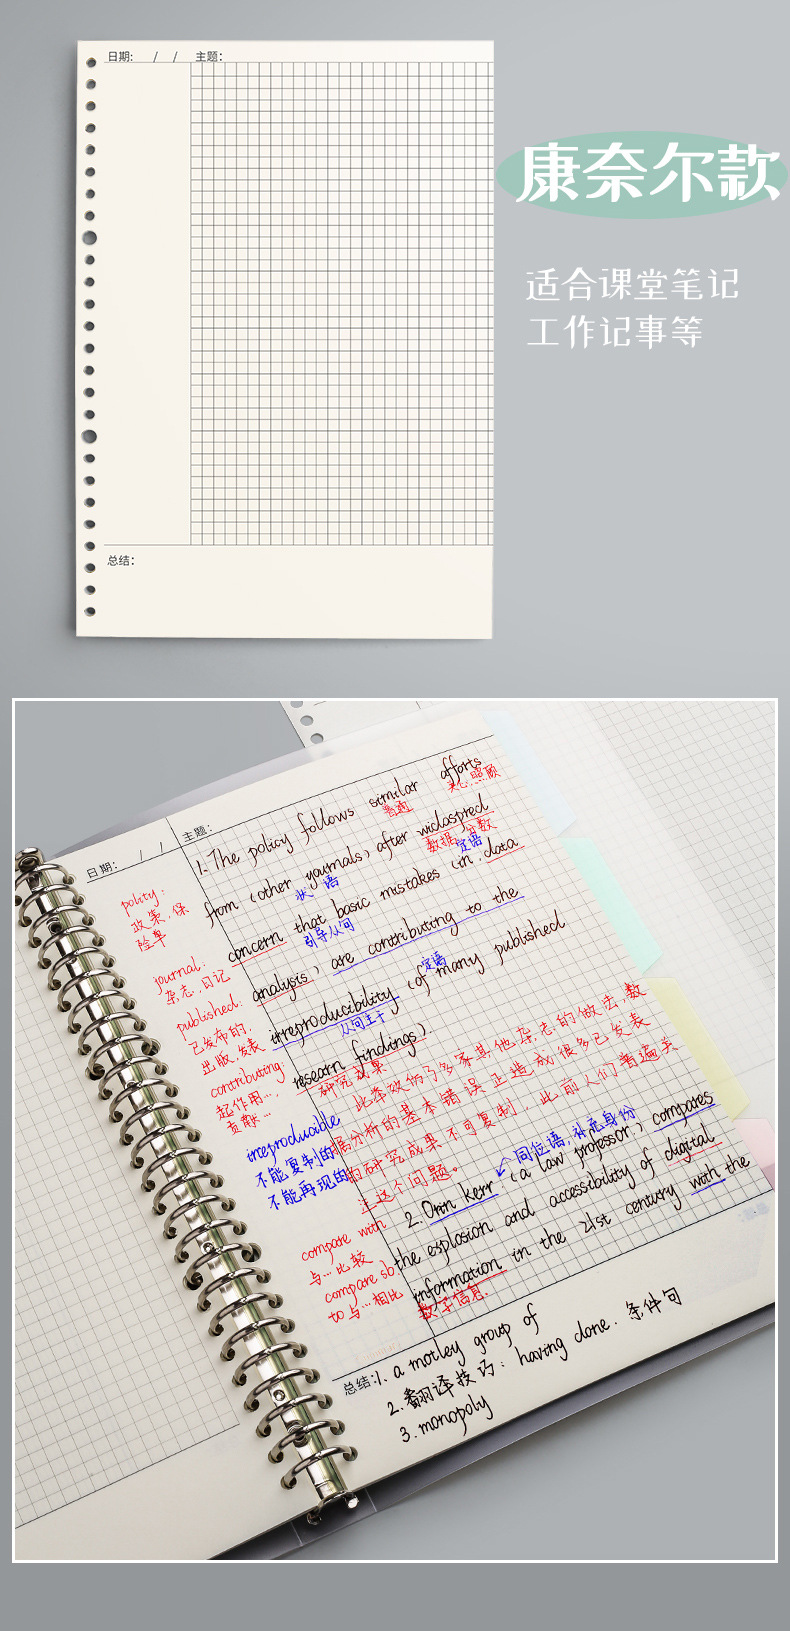 日期: / / 主题:
康奈尔款
适合课堂笔记
工作记事等
总结:
日期: / / 主题:
1. The policy follows similar efforts
普通 关心，照顾
from (other journals) after widespred
状语 数据，分数
定语
concern that basic mistakes (in data
引导从句
analysis) are contributing to the
定语
irreproducibility (of many published
从句主干
researn findings).
研究成果
此举效仿了多家其他杂志的做法，数
据分析的基本错误正造成很多已发表
的研究成果不可复制，此前人们普遍关
注这个问题。
同位语，补充身份
2. Orin Kerr (a law professor) compares
the explosion and accessibility of digital
information in the 21st century with the
数字信息.
polity:
政策，保
险单
journal:
杂志，日记
published:
已发布的，
出版，发表
contributing:
起作用…
贡献…
irreproducible
不能复制的
不能再现的
compare with
与…比较
compare sb.
to 与…相比
总结: 1. a motley group of
2. 翻译技巧: having done. 条件句
3. monopoly